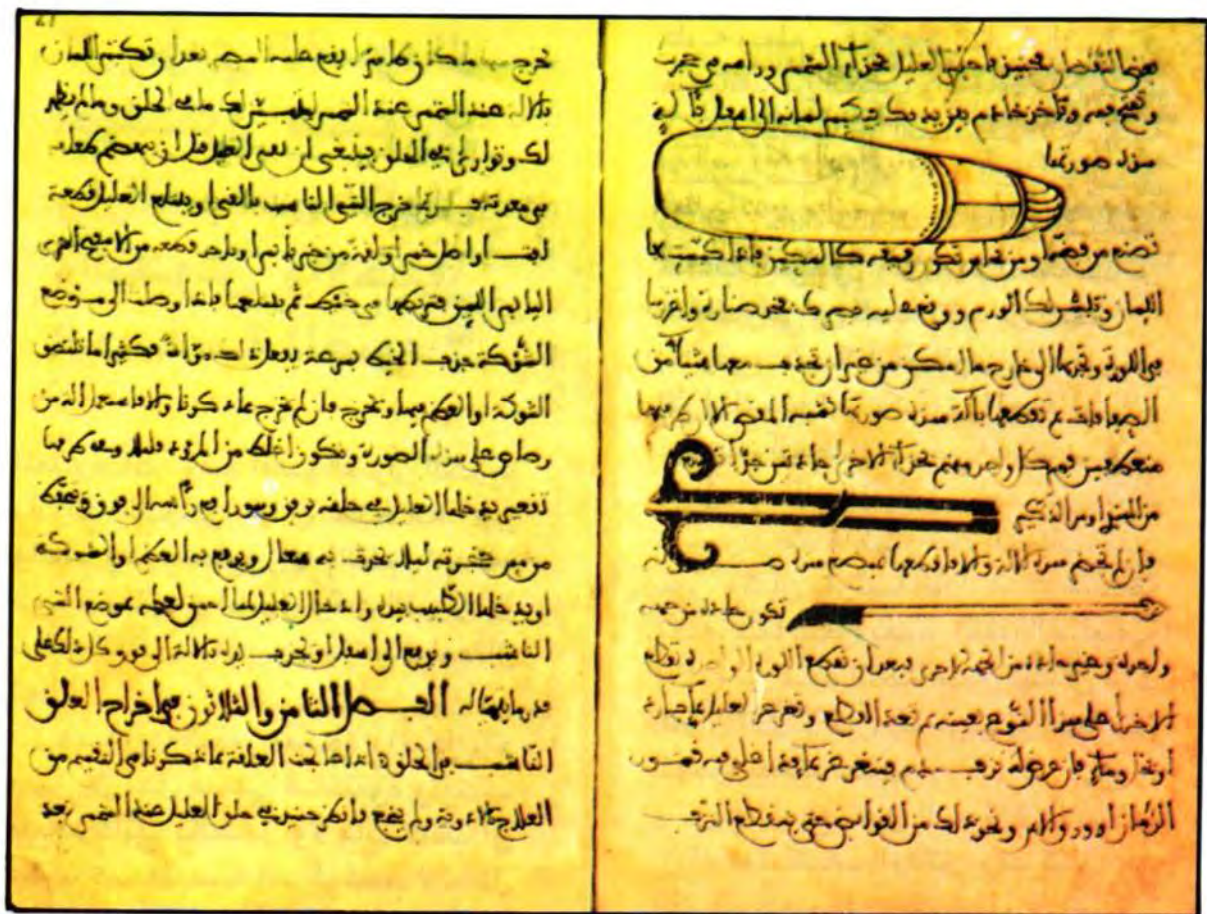 فاجلس العليل بحذاء الشمس وراسه في حجرك
وتفتح فمه وتاخذ خادم بين يديك فيكبس لسانه الى اسفل بآلة
هذه صورتها
تصنع من فضة او من نحاس تكون رقيقة كالسكين فاذا كبست بها
اللسان وتبين لك الورم ووقع عليه بصرك فخذ صنارة واغرزها
في اللوزة وتجذبها الى خارج ما امكن من غير ان تجذب معها شيئا من
الصفاقات ثم تقطعها بآلة هذه صورتها تشبه المقص الا ان طرفيها
منعطفين فم كل واحد منهم بحذاء الاخر حادة جدا
من او من
فان لم تحضر هذه الالة والا فاقطعها بمبضع هذه
تكون حادة من جهة
واحدة وغير حادة من الجهة الاخرى فبعد ان تقطع اللوزة الواحدة تقطع
الاخرى على هذا النوع بعينه ثم بعد القطع يتغرغر العليل بماء بارد
او بخل وماء فان عرض له نزف دم فيتغرغر بماء قد اغلي فيه قشور
الرمان او ورق الاس ونحو ذلك من القوابض حتى ينقطع النزف
يخرج منها ما كان ظاهرا يقع عليه البصر بعد ان تكبس اللسان
بالالة عند الشمس ليتبين لك ما في الحلق وما لم يظهر
لك وتوارى في الحلق فينبغي ان العليل قبل ان ينهضم طعامه
في معدته فربما خرج الشيء الناشب بالقيء او يبتلع العليل قطعة
لفت او اصل خس او لقمة من خبز يابس او ياخذ قطعة من الاسفنج البحري
اليابس اللين فيربطها في خيط ثم يبتلعها فاذا وصلت الى موضع
الشوكة جذب الخيط بسرعة يفعل ذلك مرات فكثيرا ما تلتصق
الشوكة او العظم فيها وتخرج فان لم تخرج بما ذكرنا والا فاستعمل آلة من
رصاص على هذه الصورة وتكون اغلظ من المرود قليلا وفي طرفها
تدخلها العليل في حلقه برفق وهو رافع راسه الى فوق وتحفظ
من مس حنجرته ليلا يحدث به سعال ويدفع به العظم او الشوكة
او يدخلها الطبيب بيده وادخال العليل لها احسن لعلمه بموضع الشيء
الناشب ويدفع الى اسفل او يجذب يده بالالة الى فوق كل ذلك على
قدر ما يتهيا له الفصل الثامن والثلاثون في اخراج العلق
الناشب في الحلق اذا عالجت العلقة بما ذكرنا في التقسيم من
العلاج بالادوية ولم ينجع فانظر حينئذ في حلق العليل عند الشمس بعد